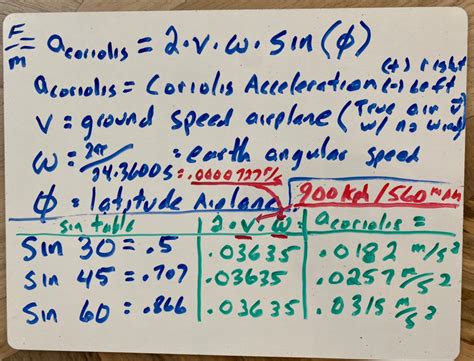 F/m = a coriolis = 2·v·ω·Sin(Φ)
(+) right
a coriolis = Coriolis Acceleration (-) Left
V = ground speed airplane (True air v w/ no wind)
ω = 2π / 24·3600s = .0000727 r/s = earth angular speed
Φ = latitude Airplane 900 Kph/560 mph
Sin table | 2·v·ω | a coriolis =
Sin 30 = .5 | .03635 | .0182 m/s²
Sin 45 = .707 | .03635 | .0257 m/s²
Sin 60 = .866 | .03635 | .0315 m/s²